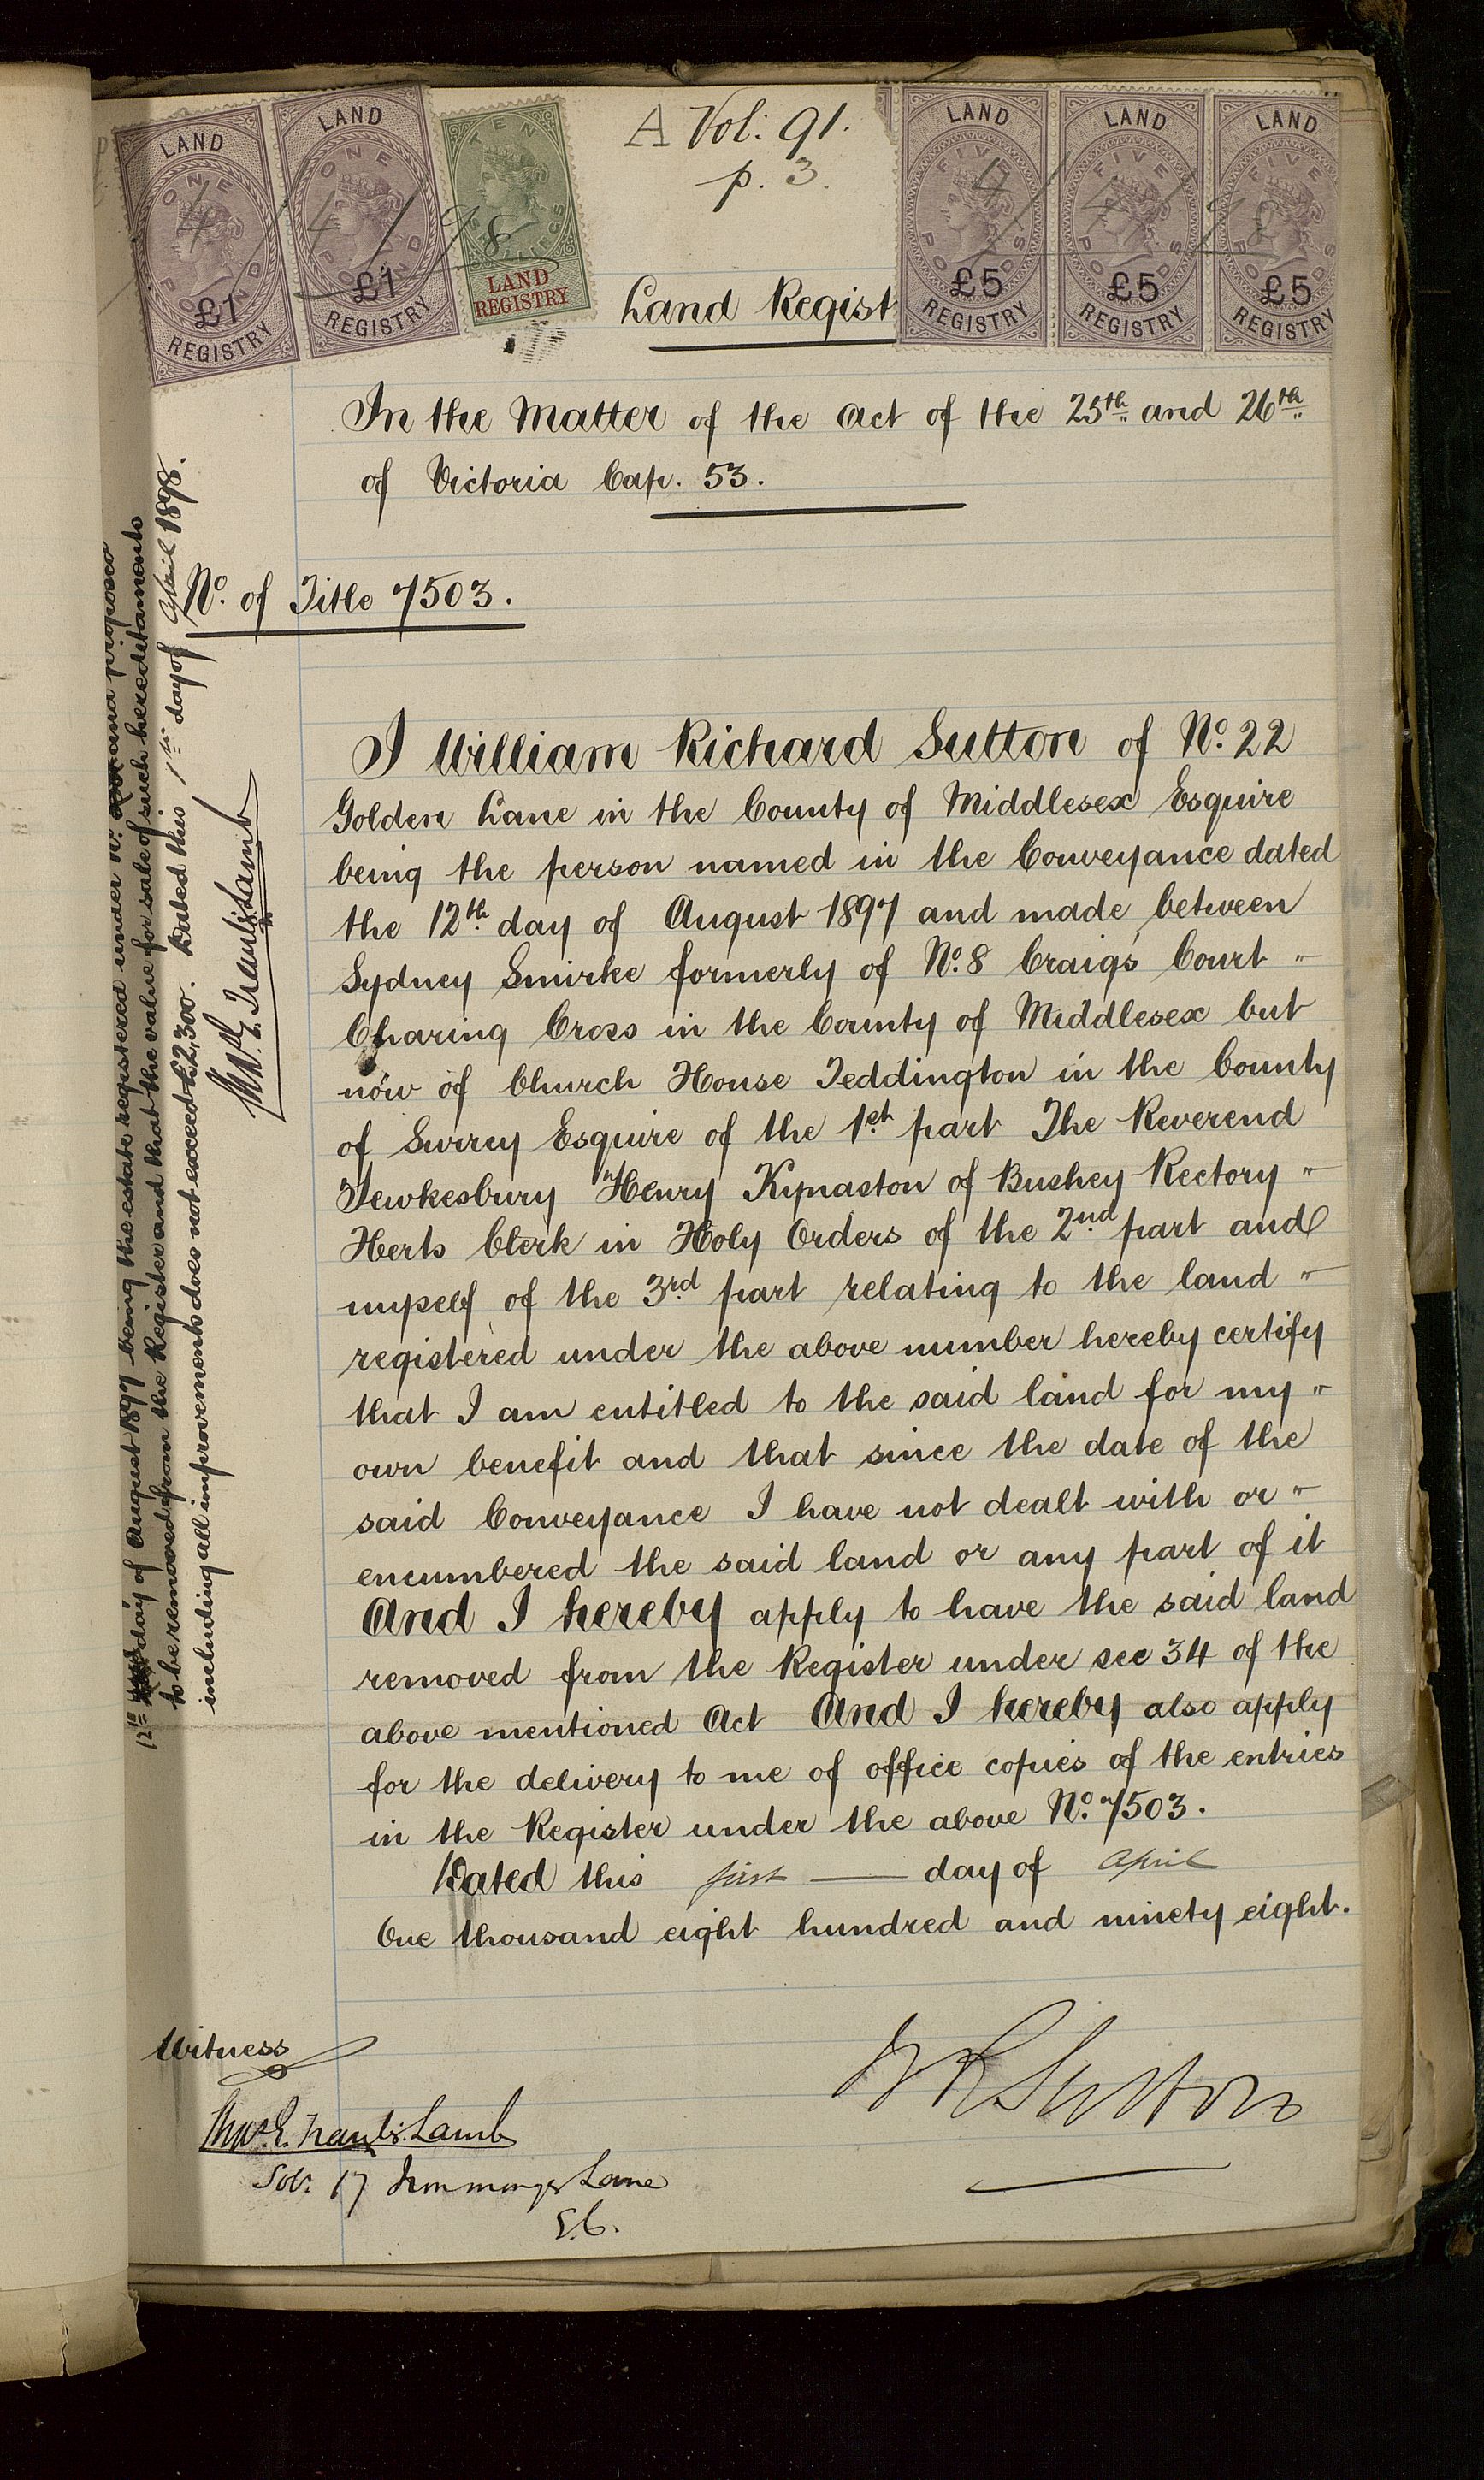 A Vol: 91.
p. 3.
LAND
ONE
POUND
£1
REGISTRY
LAND
ONE
POUND
£1
REGISTRY
TEN
SHILLINGS
LAND
REGISTRY
LAND
FIVE
POUNDS
£5
REGISTRY
LAND
FIVE
POUNDS
£5
REGISTRY
LAND
FIVE
POUNDS
£5
REGISTRY
4/4/98
4/4/98
Land Regist
In the Matter of the Act of the 25th and 26th
of Victoria Cap. 53.
No. of Title 7503.
I William Richard Sutton of No. 22
Golden Lane in the County of Middlesex Esquire
being the person named in the Conveyance dated
the 12th day of August 1897 and made between
Sydney Smirke formerly of No. 8 Craig's Court "
Charing Cross in the County of Middlesex but
now of Church House Teddington in the County
of Surrey Esquire of the 1st part The Reverend
Tewkesbury Henry Kynaston of Bushey Rectory "
Herts Clerk in Holy Orders of the 2nd part and
myself of the 3rd part relating to the land "
registered under the above number hereby certify
that I am entitled to the said land for my "
own benefit and that since the date of the
said Conveyance I have not dealt with or "
encumbered the said land or any part of it
And I hereby apply to have the said land
removed from the Register under sec 34 of the
above mentioned Act And I hereby also apply
for the delivery to me of office copies of the entries
in the Register under the above No. 7503.
Dated this first day of April
One thousand eight hundred and ninety eight.
W R Sutton
Witness
Thos. E. Lamb
Solr. 17 Ironmonger Lane
E.C.
12th day of August 1897 being the estate registered under No. and proposed
to be removed from the Register and that the value for sale of such hereditaments
including all improvements does not exceed £2,300. Dated this 1st day of April 1898.
Thos. E. Lamb